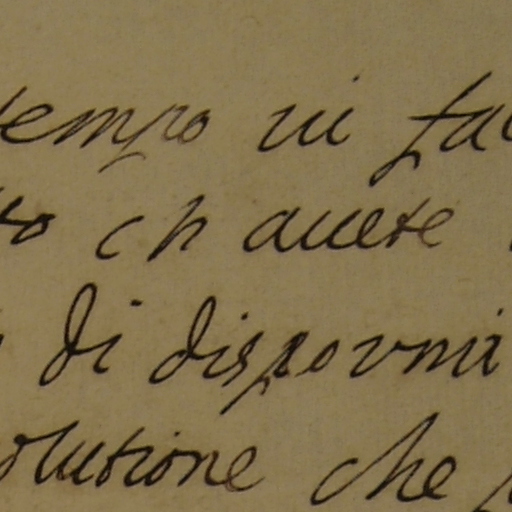 tempo ui fac
to ch auete
di disporui
olutione che